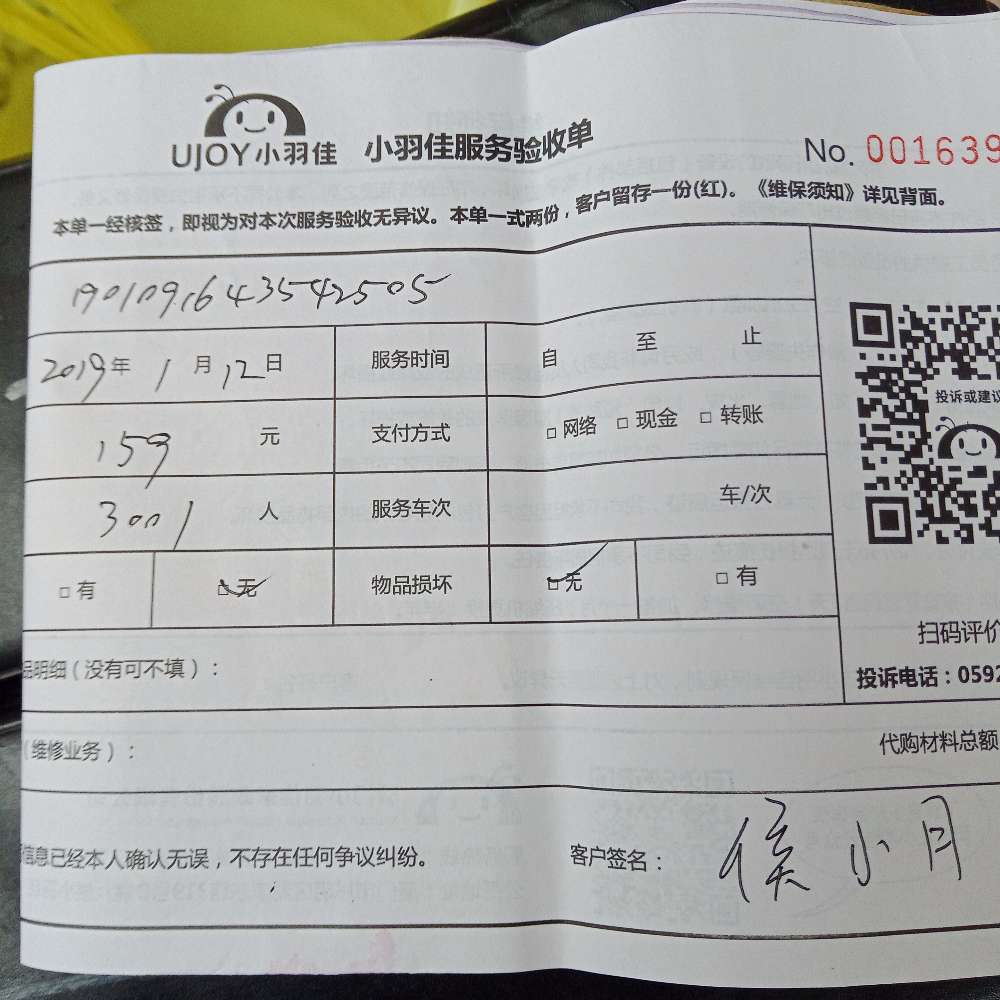 UJOY小羽佳 小羽佳服务验收单 No. 001639
本单一经核签，即视为对本次服务验收无异议。本单一式两份，客户留存一份(红)。《维保须知》详见背面。
1901091643542505
2019年 1月12日 服务时间 自 至 止
159 元 支付方式 □ 网络 □ 现金 □ 转账
3001 人 服务车次 车/次
投诉或建议
□ 有 □ 无 物品损坏 □ 无 □ 有
扫码评价
品明细（没有可不填）：
投诉电话：0592
（维修业务）：
代购材料总额
信息已经本人确认无误，不存在任何争议纠纷。 客户签名： 侯小月